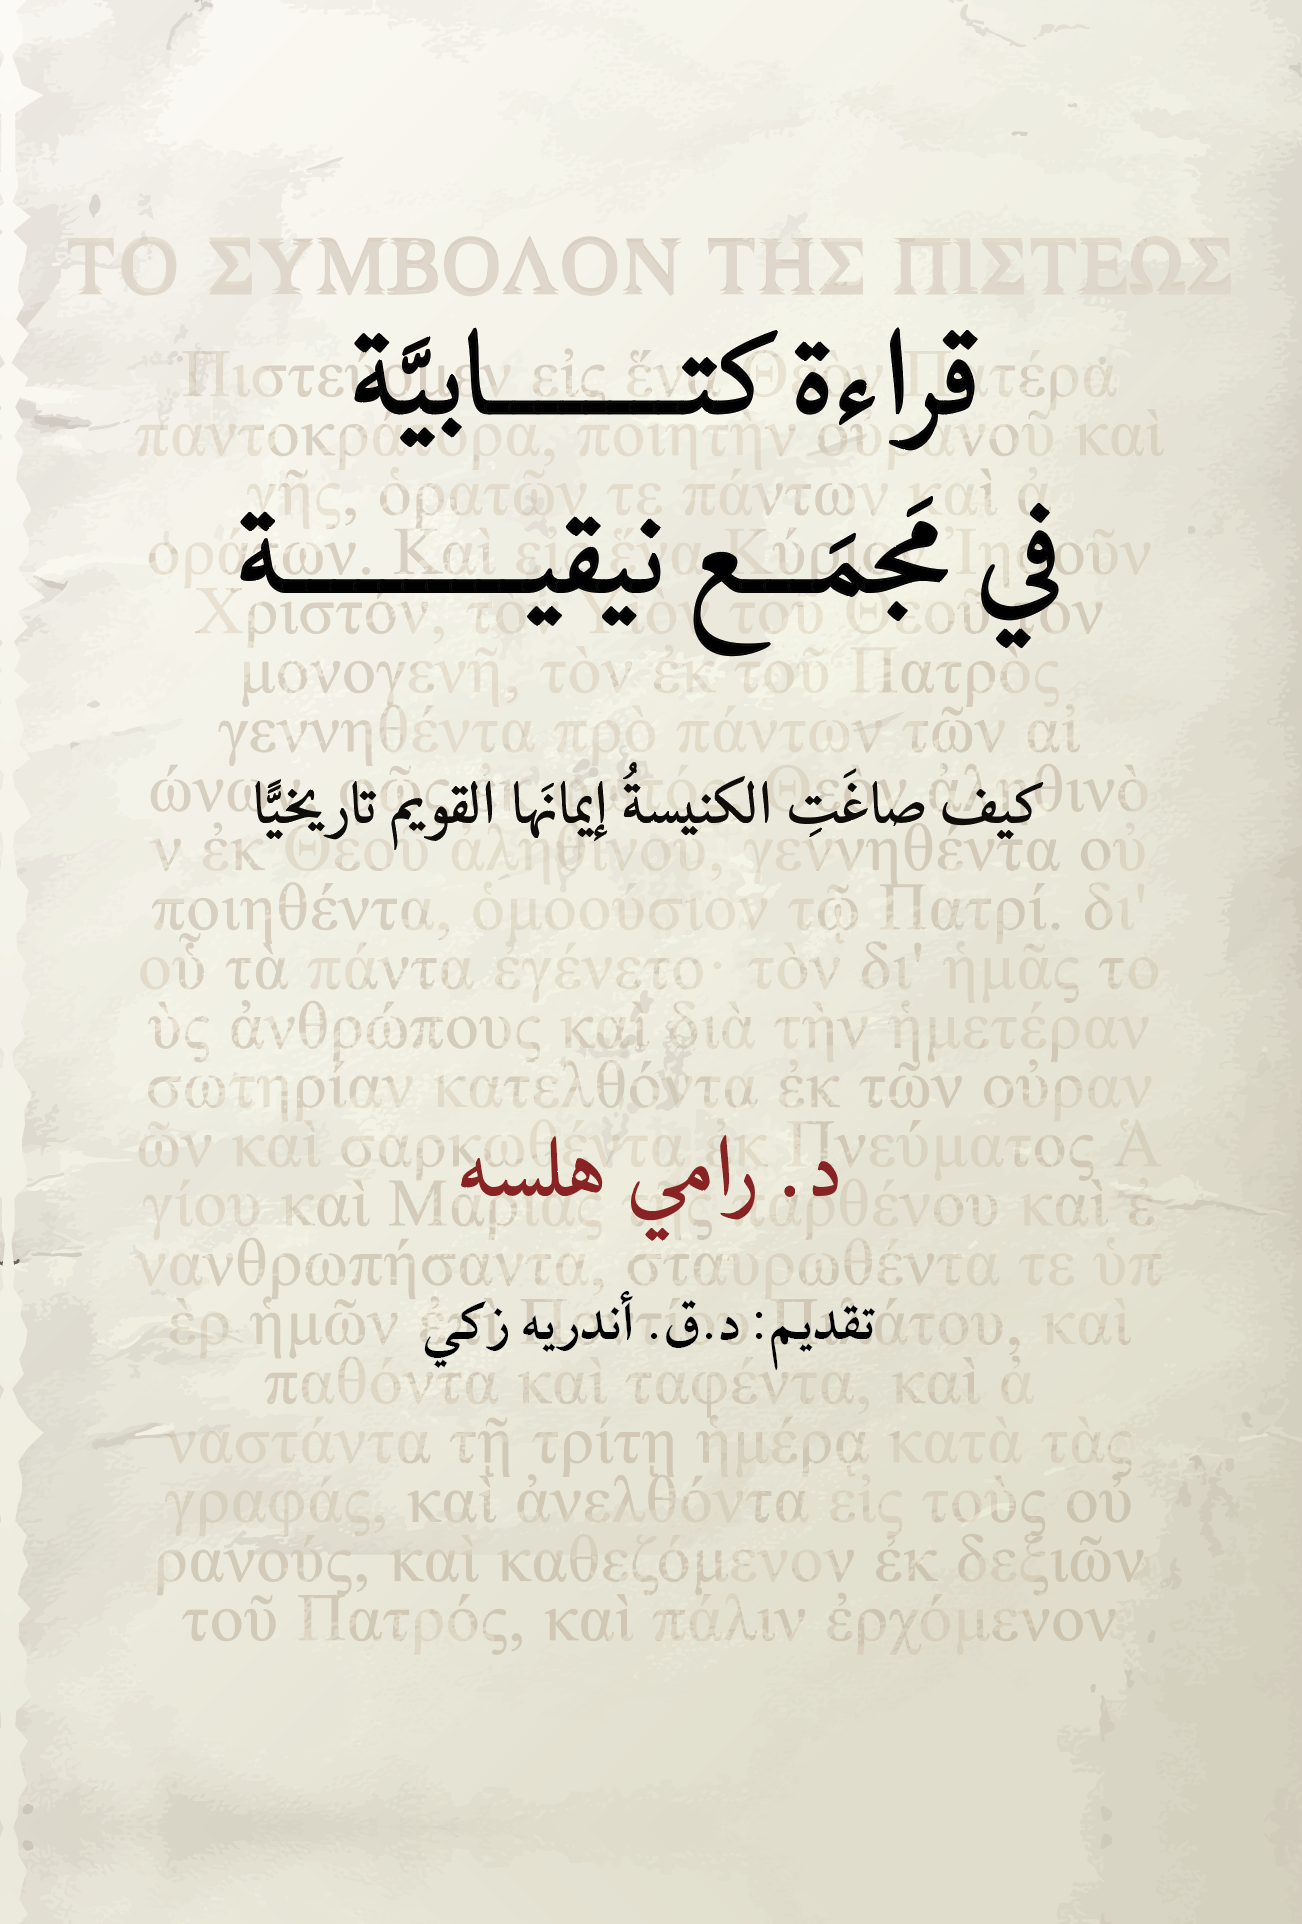 ΤΟ ΣΥΜΒΟΛΟΝ ΤΗΣ ΠΙΣΤΕΩΣ
قراءة كتـــــابيَّة
Πιστεύομεν εἰς ἕνα Θεὸν Πατέρα
παντοκράτορα, ποιητὴν οὐρανοῦ καὶ
γῆς, ὁρατῶν τε πάντων καὶ ἀ
في مَجمَـــع نيقيـــــــة
οράτων. Καὶ εἰς ἕνα Κύριον Ἰησοῦν
Χριστόν, τὸν Υἱὸν τοῦ Θεοῦ τὸν
μονογενῆ, τὸν ἐκ τοῦ Πατρὸς
γεννηθέντα πρὸ πάντων τῶν αἰ
كيف صاغَتِ الكنيسةُ إيمانَها القويم تاريخيًّا
Θεὸν ἀληθινὸ
ν ἐκ Θεοῦ ἀληθινοῦ, γεννηθέντα οὐ
ποιηθέντα, ὁμοούσιον τῷ Πατρί. δι'
οὗ τὰ πάντα ἐγένετο· τὸν δι' ἡμᾶς το
ὺς ἀνθρώπους καὶ διὰ τὴν ἡμετέραν
σωτηρίαν κατελθόντα ἐκ τῶν οὐραν
ῶν καὶ σαρκωθέντα ἐκ Πνεύματος Ἁ
د. رامي هلسه
γίου καὶ Μαρίας τῆς παρθένου καὶ ἐ
νανθρωπήσαντα, σταυρωθέντα τε ὑπ
تقديم: د.ق. أندريه زكي
ὲρ ἡμῶν ἐπὶ Ποντίου Πιλάτου, καὶ
παθόντα καὶ ταφέντα, καὶ ἀ
ναστάντα τῇ τρίτῃ ἡμέρᾳ κατὰ τὰς
γραφάς, καὶ ἀνελθόντα εἰς τοὺς οὐ
ρανούς, καὶ καθεζόμενον ἐκ δεξιῶν
τοῦ Πατρός, καὶ πάλιν ἐρχόμενον